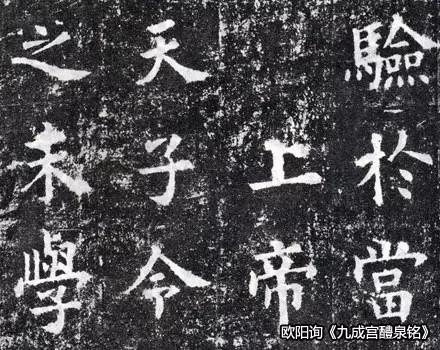 驗於當
上帝
天子令
之未學
欧阳询《九成宫醴泉铭》